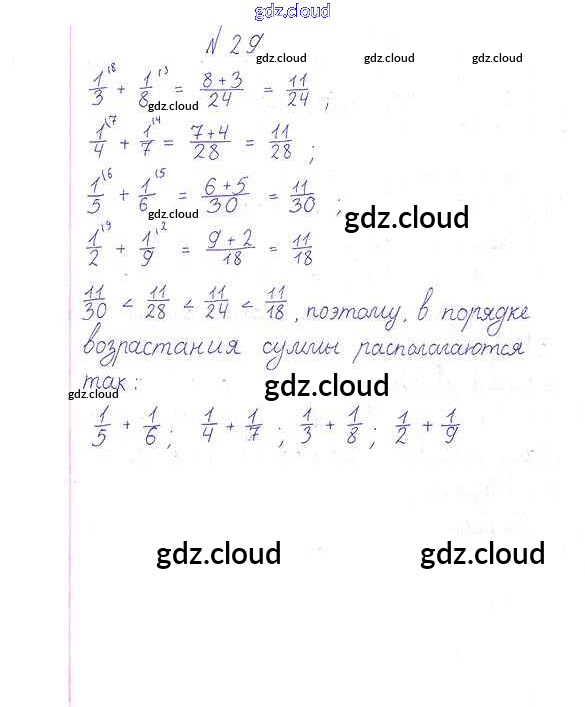 gdz.cloud
N 29
gdz.cloud gdz.cloud gdz.cloud
1/3^(8 + 1/8^(3 = (8+3)/24 = 11/24 ;
gdz.cloud
1/4^(7 + 1/7^(4 = (7+4)/28 = 11/28 ;
1/5^(6 + 1/6^(5 = (6+5)/30 = 11/30 ;
gdz.cloud gdz.cloud
1/2^(9 + 1/9^(2 = (9+2)/18 = 11/18
11/30 < 11/28 < 11/24 < 11/18, поэтому, в порядке
возрастания суммы располагаются
так:
gdz.cloud gdz.cloud
1/5 + 1/6 ; 1/4 + 1/7 ; 1/3 + 1/8 ; 1/2 + 1/9
gdz.cloud gdz.cloud